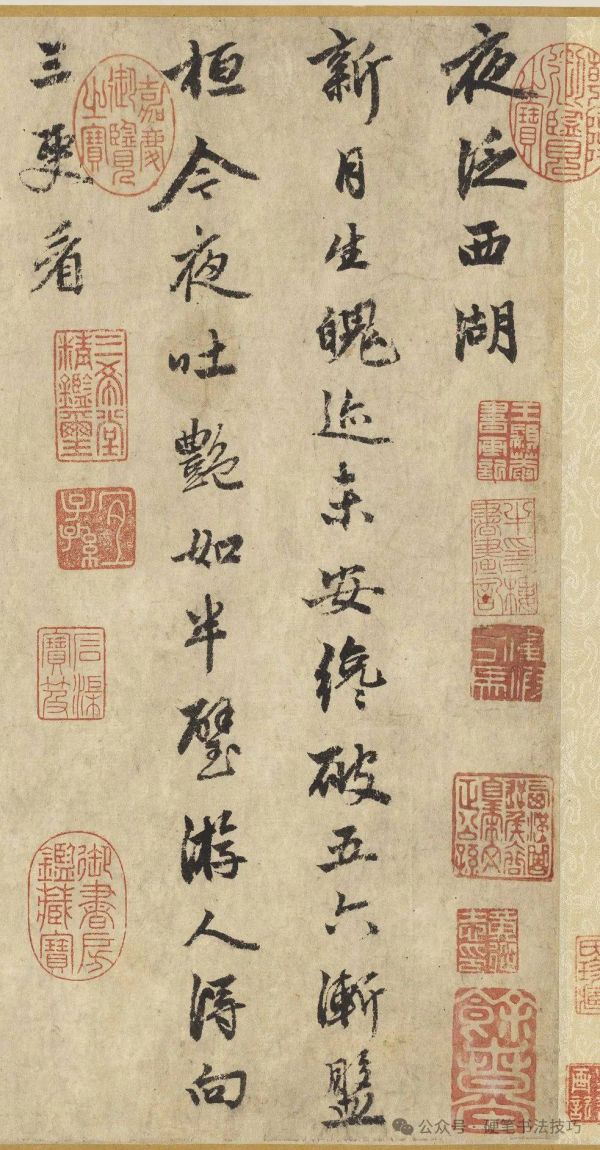 夜泛西湖
新月生魄迹未安纔破五六漸盤
桓今夜吐艷如半璧游人得向
三更看
嘉慶御覽之寶
三希堂精鑑璽
宜子孫
石渠寶笈
御書房鑑藏寶
公众号 · 硬笔书法技巧